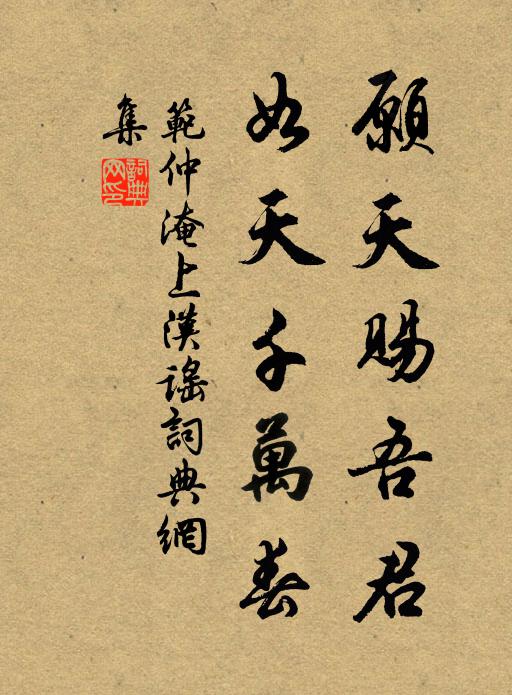 願天賜吾君
如天千萬春
範仲淹上漢謠詞典網
集
詞典
网印